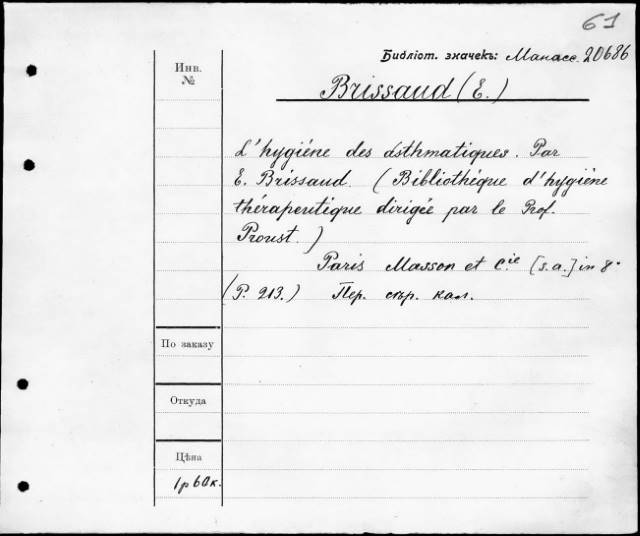 61
Библіот. значекъ: Манасс. 20686
Инв.
№
Brissaud (E.)
L'hygiéne des asthmatiques. Par
E. Brissaud. (Bibliothéque d'hygiéne
thérapeutique dirigée par le Prof.
Proust.)
Paris Masson et C.ie [s.a.] in 8°
(P. 213.) Пер. стр. кал.
По заказу
Откуда
Цѣна
1 р 60 к.